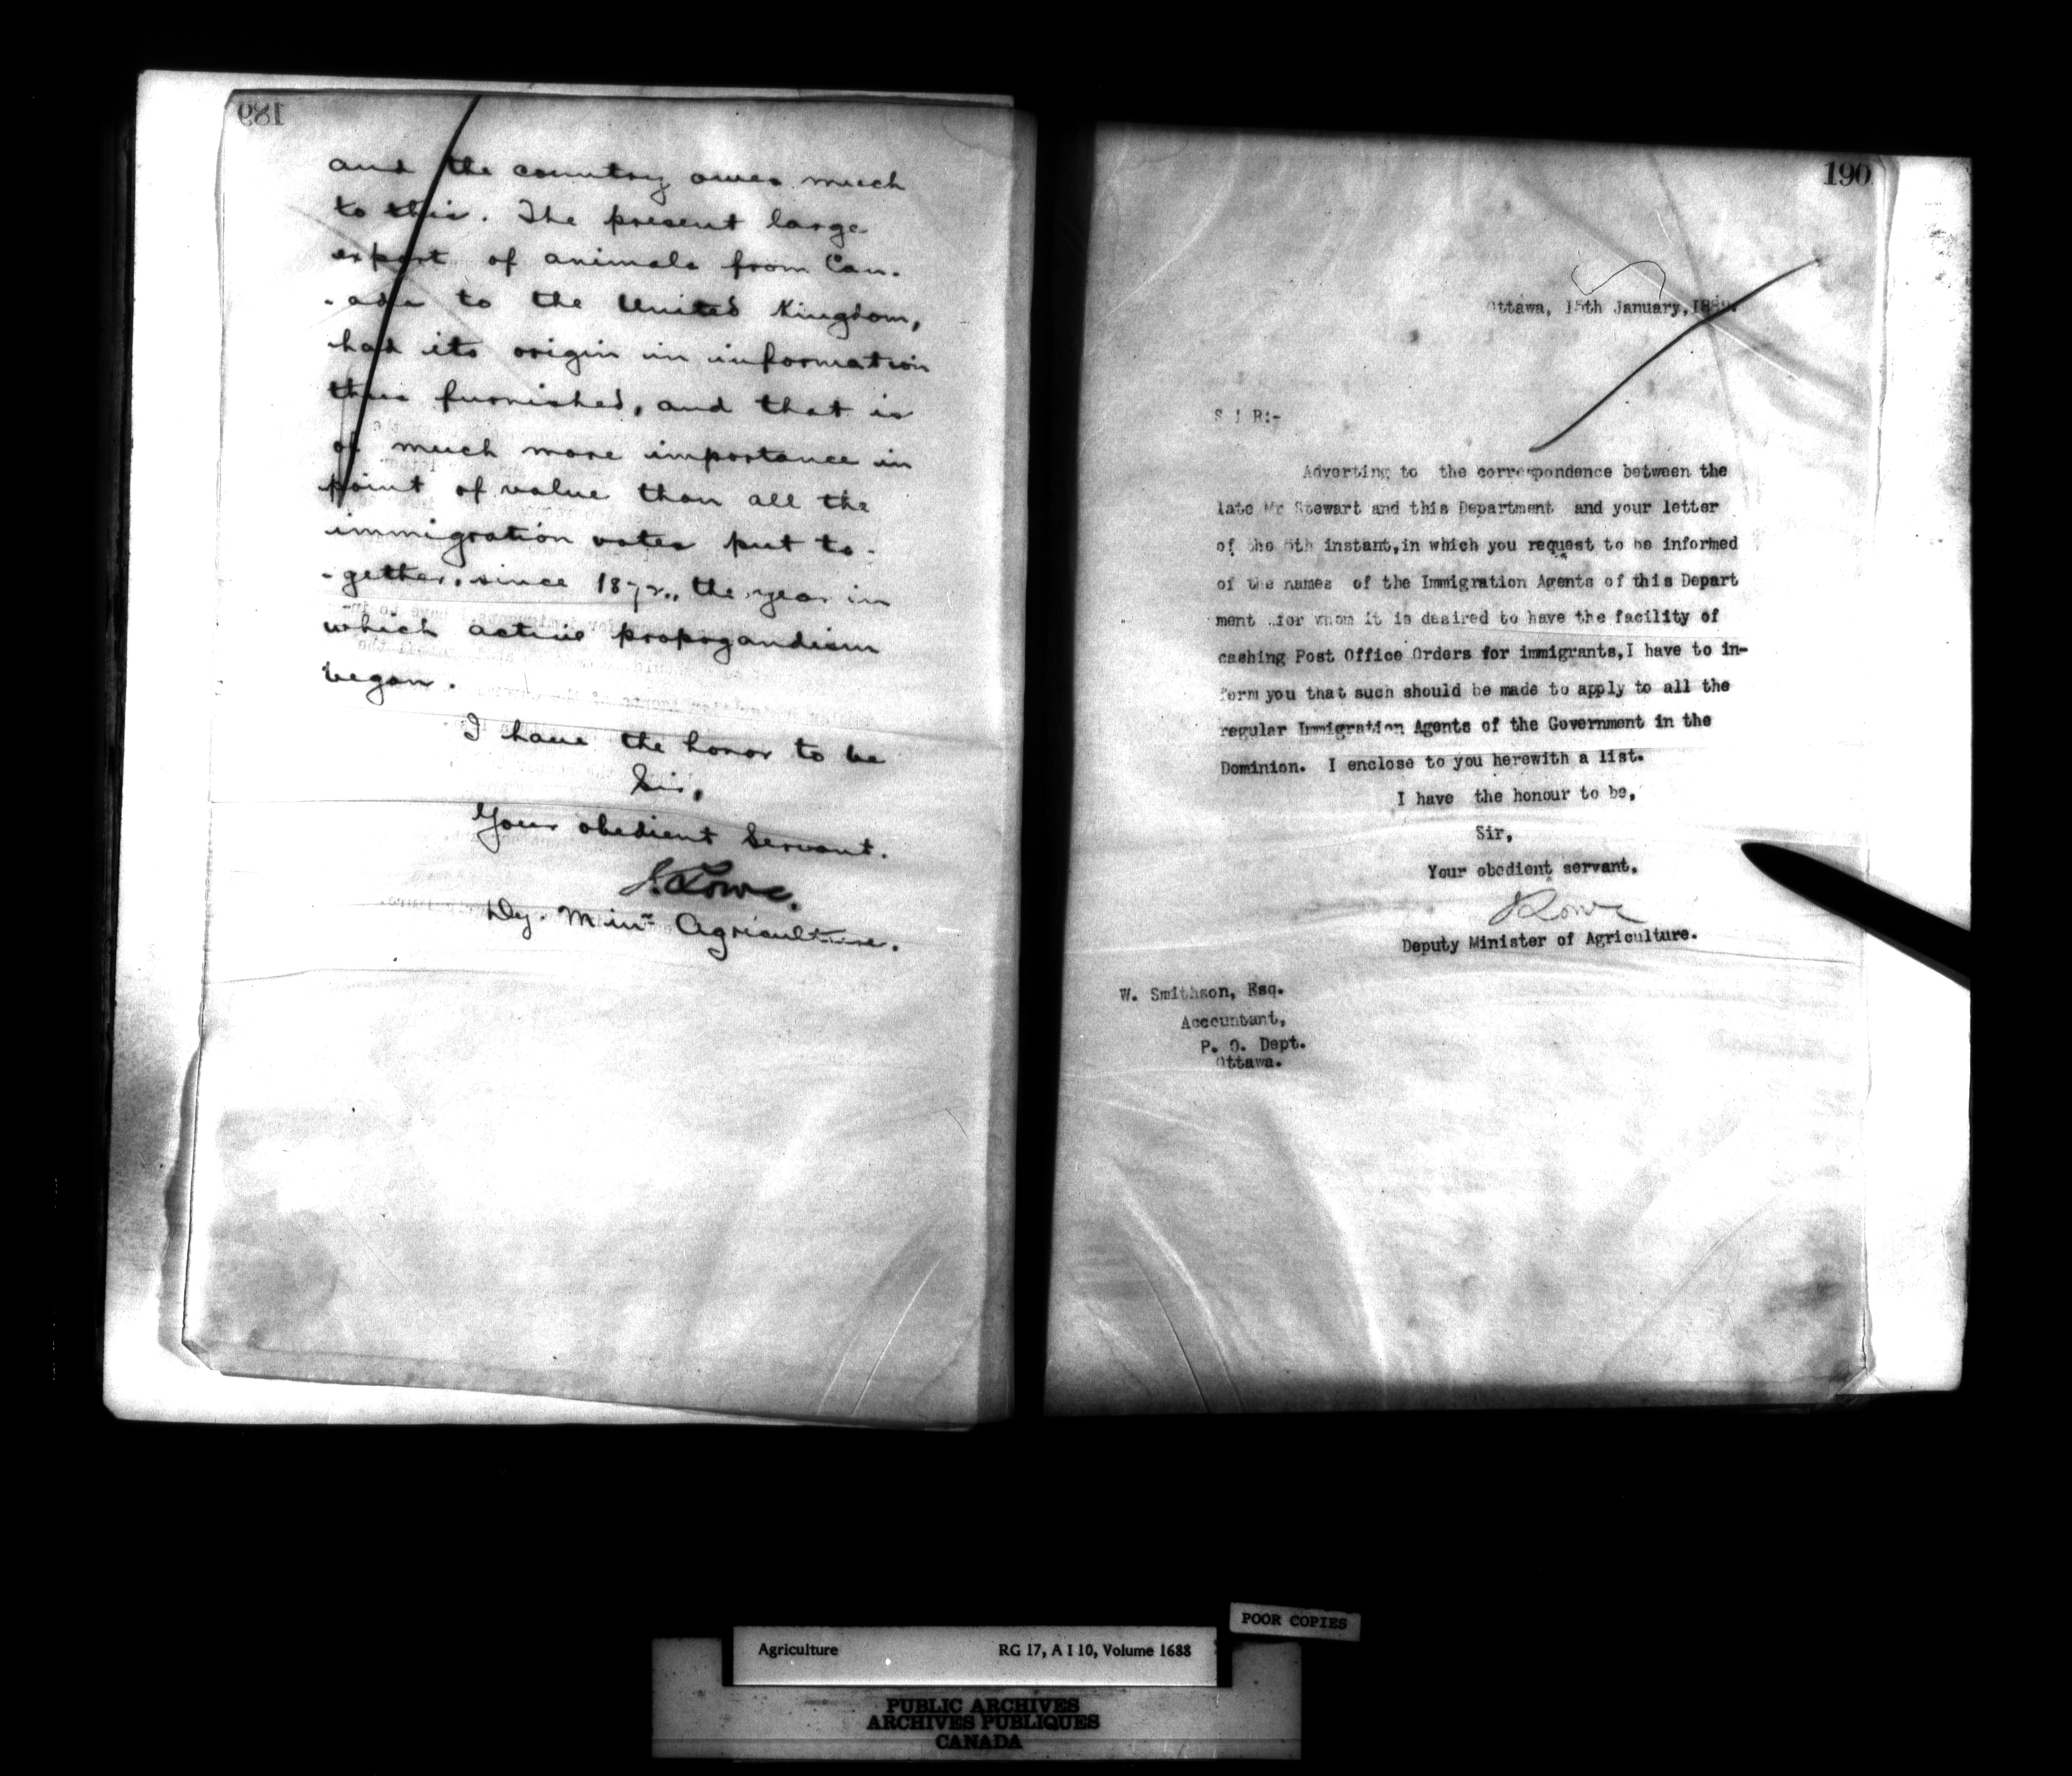 189
and the country owes much
to this. The present large
export of animals from Can-
-ada to the United Kingdom,
had its origin in information
thus furnished, and that is
of much more importance in
point of value than all the
immigration votes put to-
-gether, since 1872, the year in
which active propogandism
began.
I have the honor to be
Sir,
Your obedient Servant.
J. Lowe.
Dy. Minr Agriculture.
190
Ottawa, 15th January, 1889.
S I R:-
Adverting to the correspondence between the
late Mr Stewart and this Department and your letter
of the 5th instant, in which you request to be informed
of the names of the Immigration Agents of this Depart
ment for whom it is desired to have the facility of
cashing Post Office Orders for immigrants, I have to in-
form you that such should be made to apply to all the
regular Immigration Agents of the Government in the
Dominion. I enclose to you herewith a list.
I have the honour to be,
Sir,
Your obedient servant,
J Lowe
Deputy Minister of Agriculture.
W. Smithson, Esq.
Accountant,
P. O. Dept.
Ottawa.
POOR COPIES
Agriculture RG 17, A I 10, Volume 1688
PUBLIC ARCHIVES
ARCHIVES PUBLIQUES
CANADA